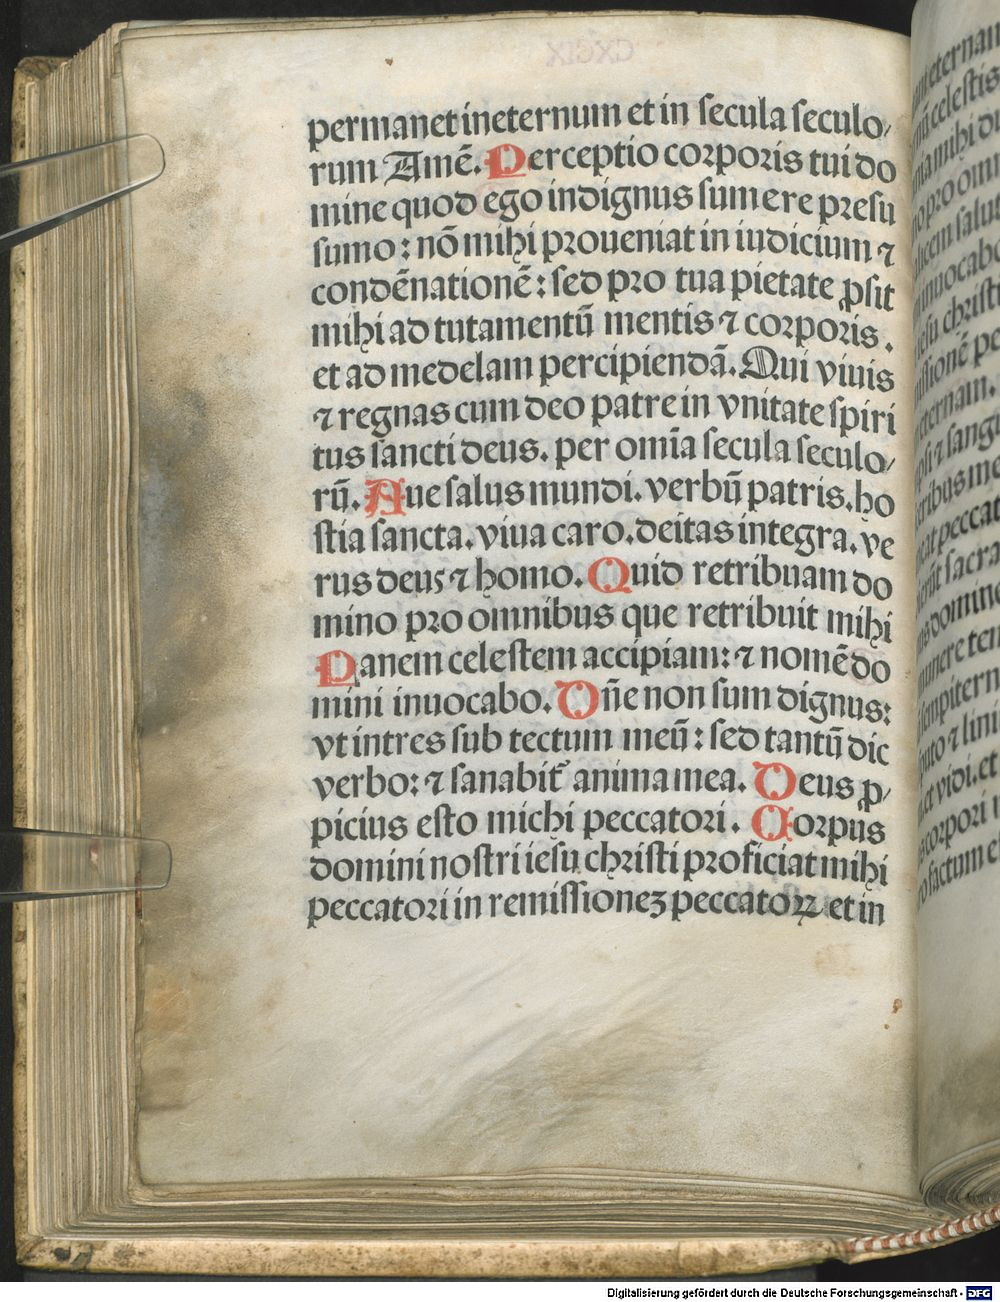 permanet ineternum et in secula seculo/
rum Amē. Perceptio corporis tui do
mine quod ego indignus sumere presu
sumo: nō mihi proueniat in iudicium ⁊
condēnationē: sed pro tua pietate ꝓsit
mihi ad tutamentū mentis ⁊ corporis.
et ad medelam percipiendā. Qui viuis
⁊ regnas cum deo patre in vnitate spiri
tus sancti deus. per omīa secula seculo/
rū. Aue salus mundi. verbū patris. ho
stia sancta. viua caro. deitas integra. ve
rus deus ⁊ homo. Quid retribuam do
mino pro omnibus que retribuit mihi
Panem celestem accipiam: ⁊ nomē do
mini inuocabo. Dn̄e non sum dignus:
vt intres sub tectum meū: sed tantū dic
verbo: ⁊ sanabit᷑ anima mea. Deus ꝓ/
picius esto michi peccatori. Corpus
domini nostri iesu christi proficiat mihi
peccatori in remissionez peccatoꝝ et in
Digitalisierung gefördert durch die Deutsche Forschungsgemeinschaft - DFG